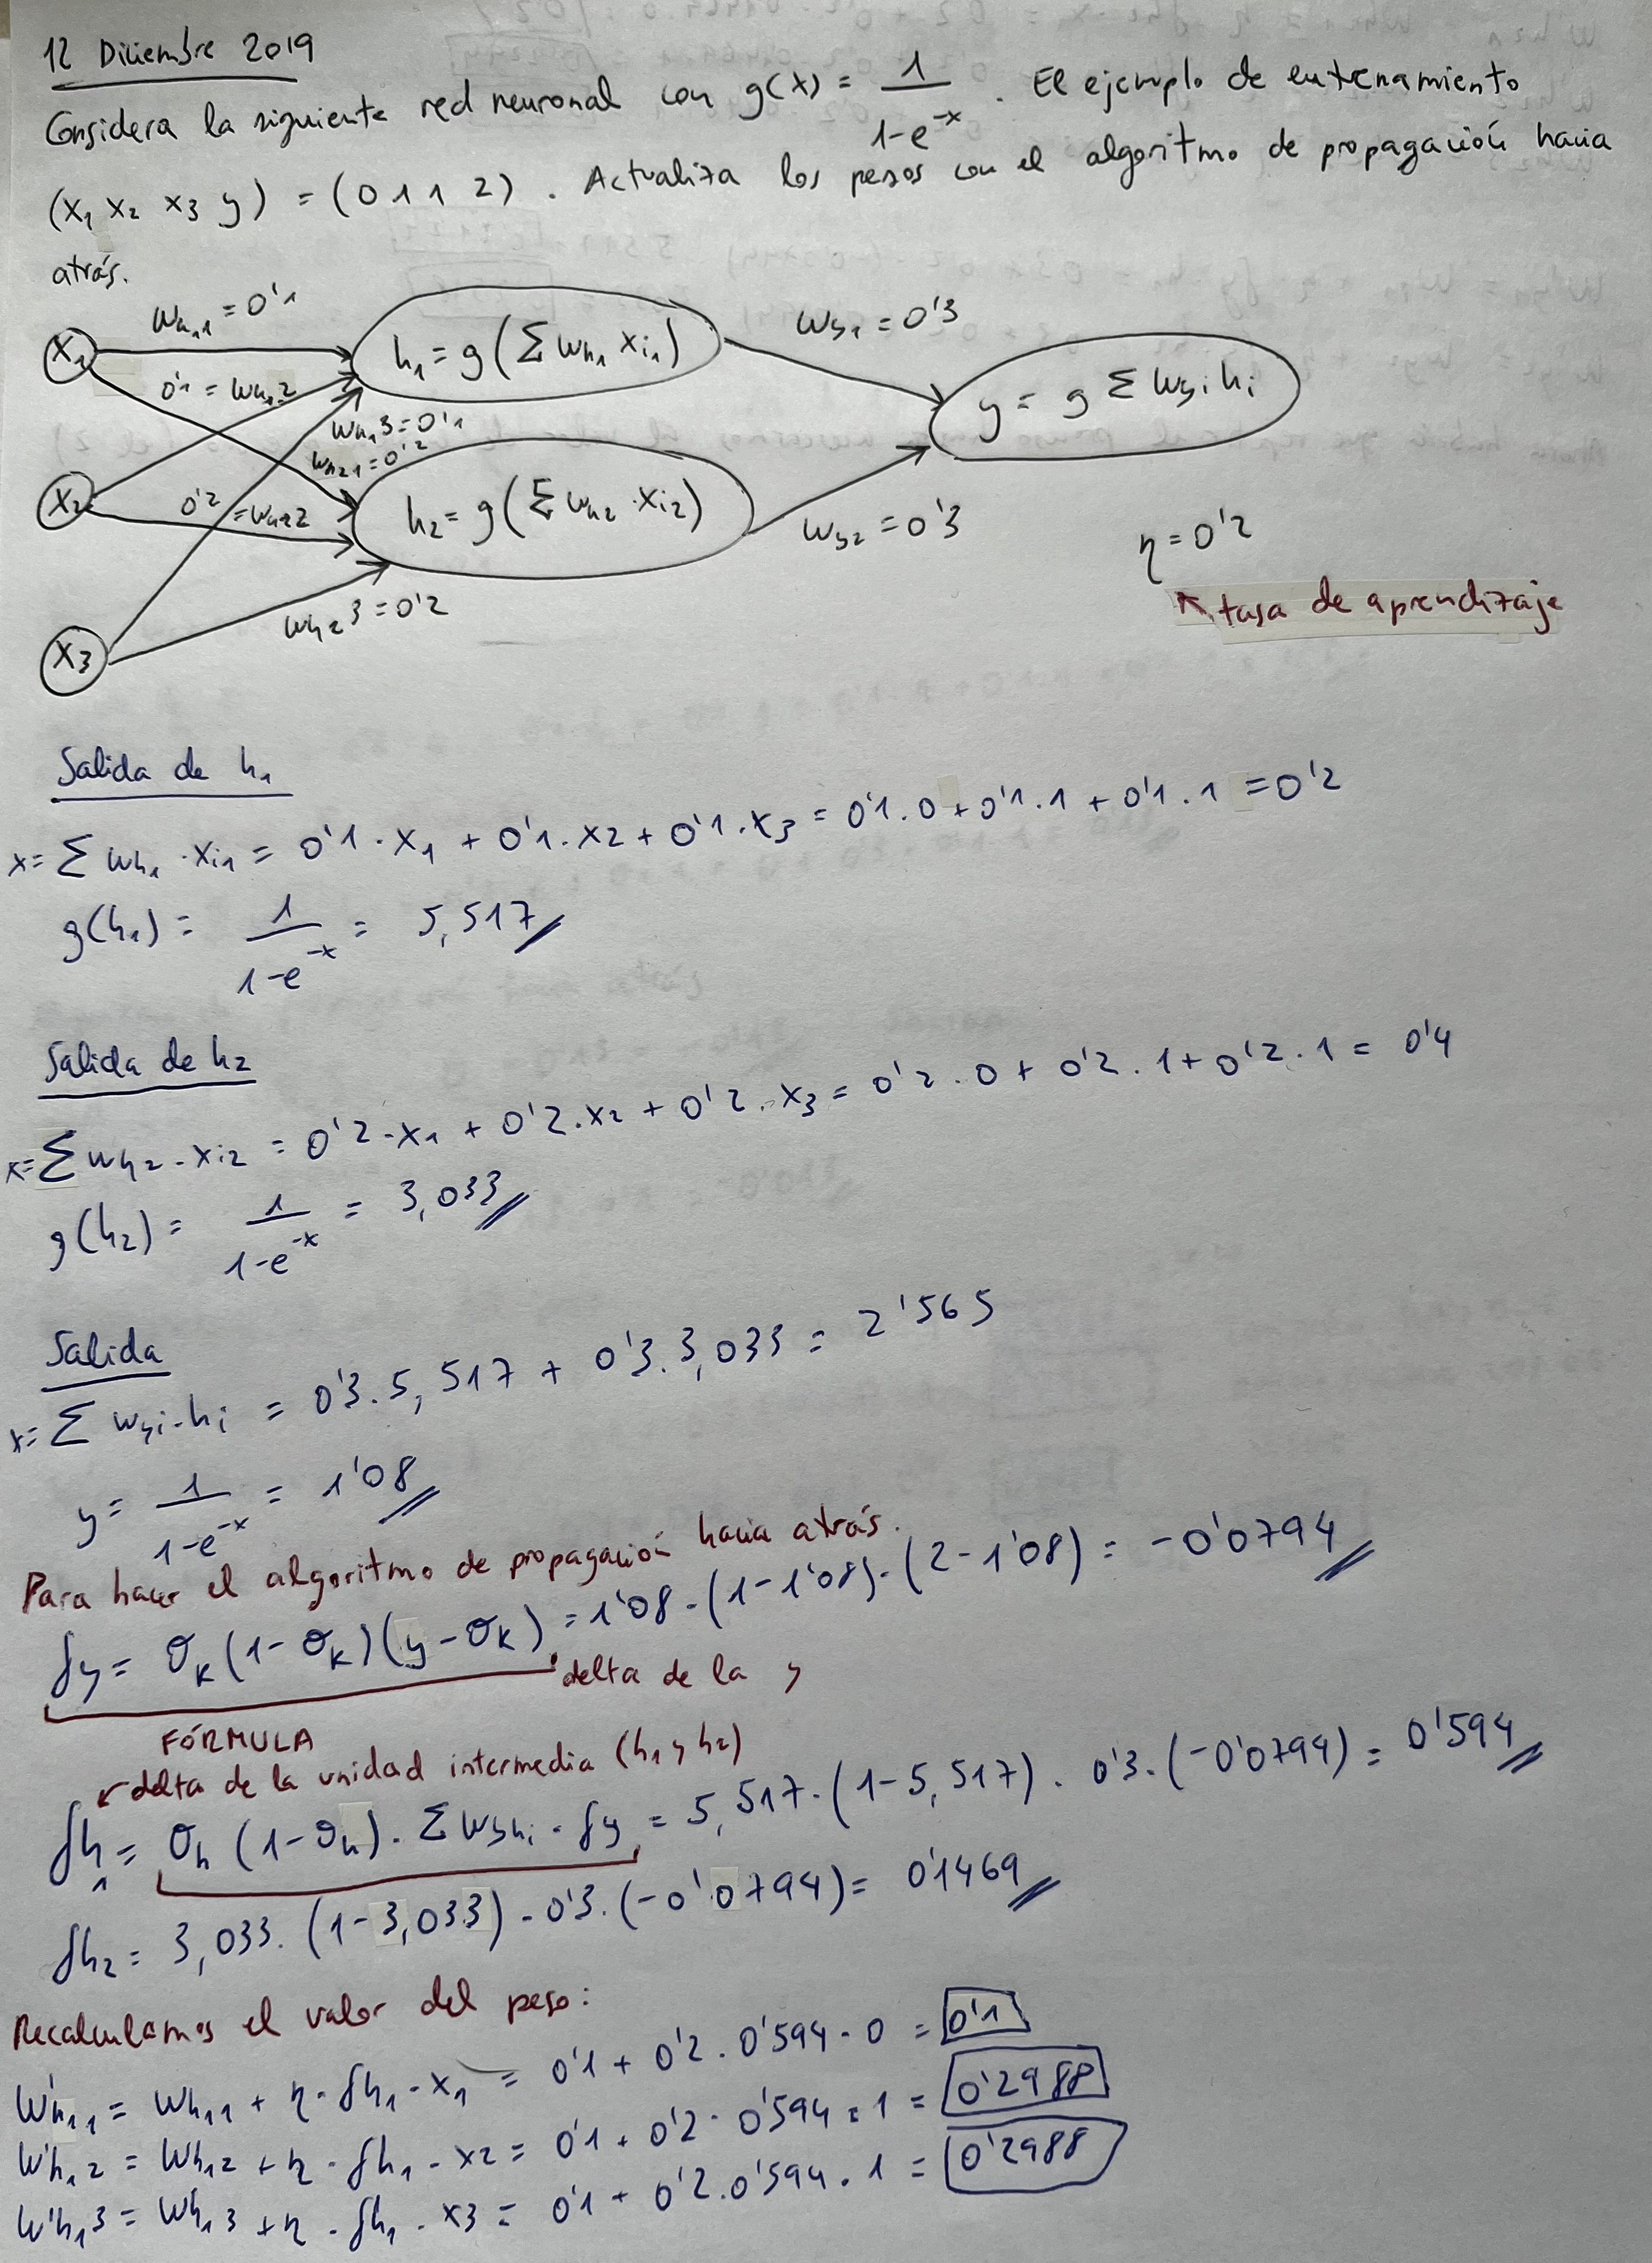 12 Diciembre 2019
Considera la siguiente red neuronal con g(x) = 1 / 1-e^-x . El ejemplo de entrenamiento
(x₁ x₂ x₃ y) = (0 1 1 2) . Actualiza los pesos con el algoritmo de propagación hacia
atrás.
x₁
Wh₁1 = 0'1
h₁ = g(Σ wh₁ xi₁)
wy₁ = 0'3
0'1 = wh₁2
y = g Σ wyi hi
wh₁3 = 0'1
wh₂1 = 0'2
x₂
0'2 = wh₂2
h₂ = g(Σ wh₂ · xi₂)
wy₂ = 0'3
η = 0'2
↖ tasa de aprendizaje
wh₂3 = 0'2
x₃
Salida de h₁
x = Σ wh₁ · xi₁ = 0'1 · x₁ + 0'1 · x₂ + 0'1 · x₃ = 0'1 · 0 + 0'1 · 1 + 0'1 · 1 = 0'2
g(h₁) = 1 / 1-e^-x = 5,517
Salida de h₂
x = Σ wh₂ · xi₂ = 0'2 · x₁ + 0'2 · x₂ + 0'2 · x₃ = 0'2 · 0 + 0'2 · 1 + 0'2 · 1 = 0'4
g(h₂) = 1 / 1-e^-x = 3,033
Salida
x = Σ wyi · hi = 0'3 · 5,517 + 0'3 · 3,033 = 2'565
y = 1 / 1-e^-x = 1'08
Para hacer el algoritmo de propagación hacia atrás.
δy = σk (1-σk)(y-σk) = 1'08 · (1-1'08) · (2-1'08) = -0'0794
delta de la y
FÓRMULA
↙ delta de la unidad intermedia (h₁ y h₂)
δh₁ = σh (1-σh) · Σ wyhi · δy = 5,517 · (1-5,517) · 0'3 · (-0'0794) = 0'594
δh₂ = 3,033 · (1-3,033) · 0'3 · (-0'0794) = 0'1469
Recalculamos el valor del peso:
W'h₁1 = Wh₁1 + η · δh₁ · x₁ = 0'1 + 0'2 · 0'594 · 0 = 0'1
W'h₁2 = Wh₁2 + η · δh₁ · x₂ = 0'1 + 0'2 · 0'594 · 1 = 0'2988
W'h₁3 = Wh₁3 + η · δh₁ · x₃ = 0'1 + 0'2 · 0'594 · 1 = 0'2988